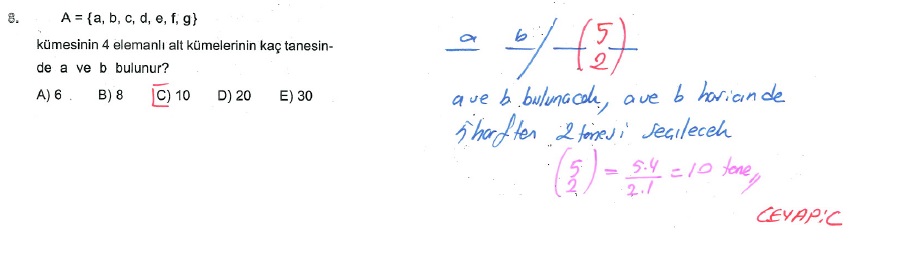 8. A = {a, b, c, d, e, f, g}
kümesinin 4 elemanlı alt kümelerinin kaç tanesin-
de a ve b bulunur?
A) 6 B) 8 C) 10 D) 20 E) 30
a b / (5 2)
a ve b bulunacak, a ve b haricinde
5 harften 2 tanesi seçilecek
(5 2) = 5.4 / 2.1 = 10 tane,,
CEVAP: C